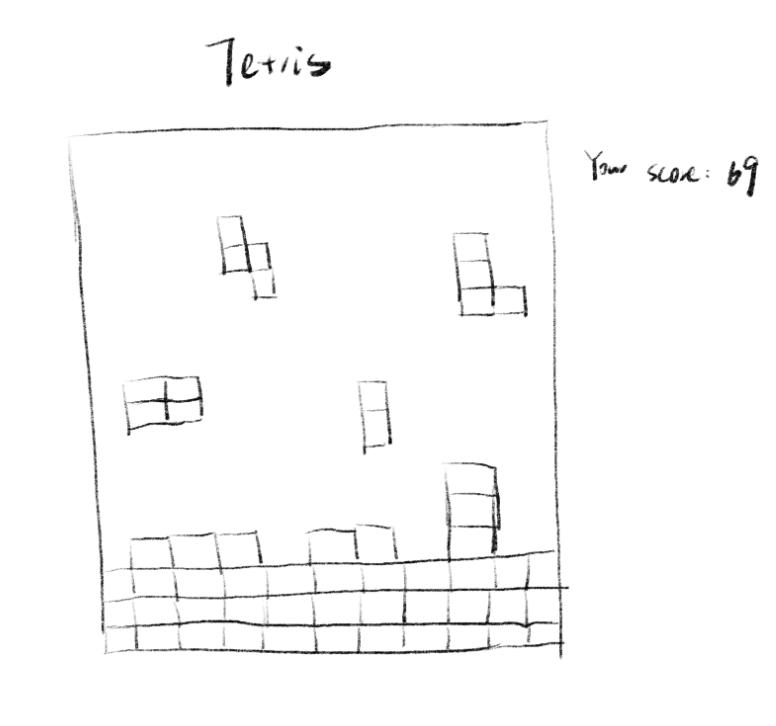 Tetris
Your score: 69